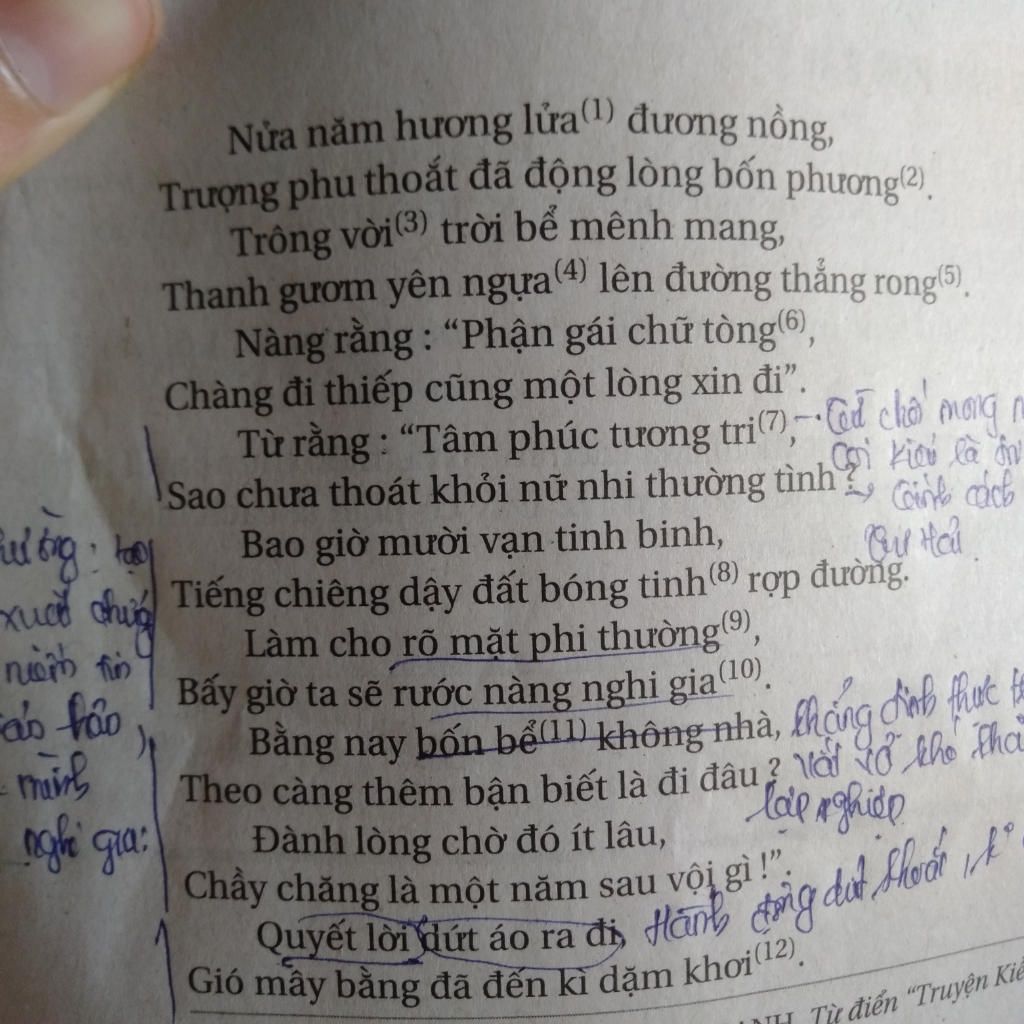 Nửa năm hương lửa(1) đương nồng,
Trượng phu thoắt đã động lòng bốn phương(2).
Trông vời(3) trời bể mênh mang,
Thanh gươm yên ngựa(4) lên đường thẳng rong(5).
Nàng rằng : “Phận gái chữ tòng(6),
Chàng đi thiếp cũng một lòng xin đi”.
Từ rằng : “Tâm phúc tương tri(7),
Sao chưa thoát khỏi nữ nhi thường tình ?
Bao giờ mười vạn tinh binh,
Tiếng chiêng dậy đất bóng tinh(8) rợp đường.
Làm cho rõ mặt phi thường(9),
Bấy giờ ta sẽ rước nàng nghi gia(10).
Bằng nay bốn bể(11) không nhà,
Theo càng thêm bận biết là đi đâu ?
Đành lòng chờ đó ít lâu,
Chầy chăng là một năm sau vội gì !”.
Quyết lời dứt áo ra đi,
Gió mây bằng đã đến kì dặm khơi(12).
Từ điển “Truyện Kiề
niềm tin
mình
nghi gia:
khẳng định thực
lập nghiệp
Hành động dứt khoát,